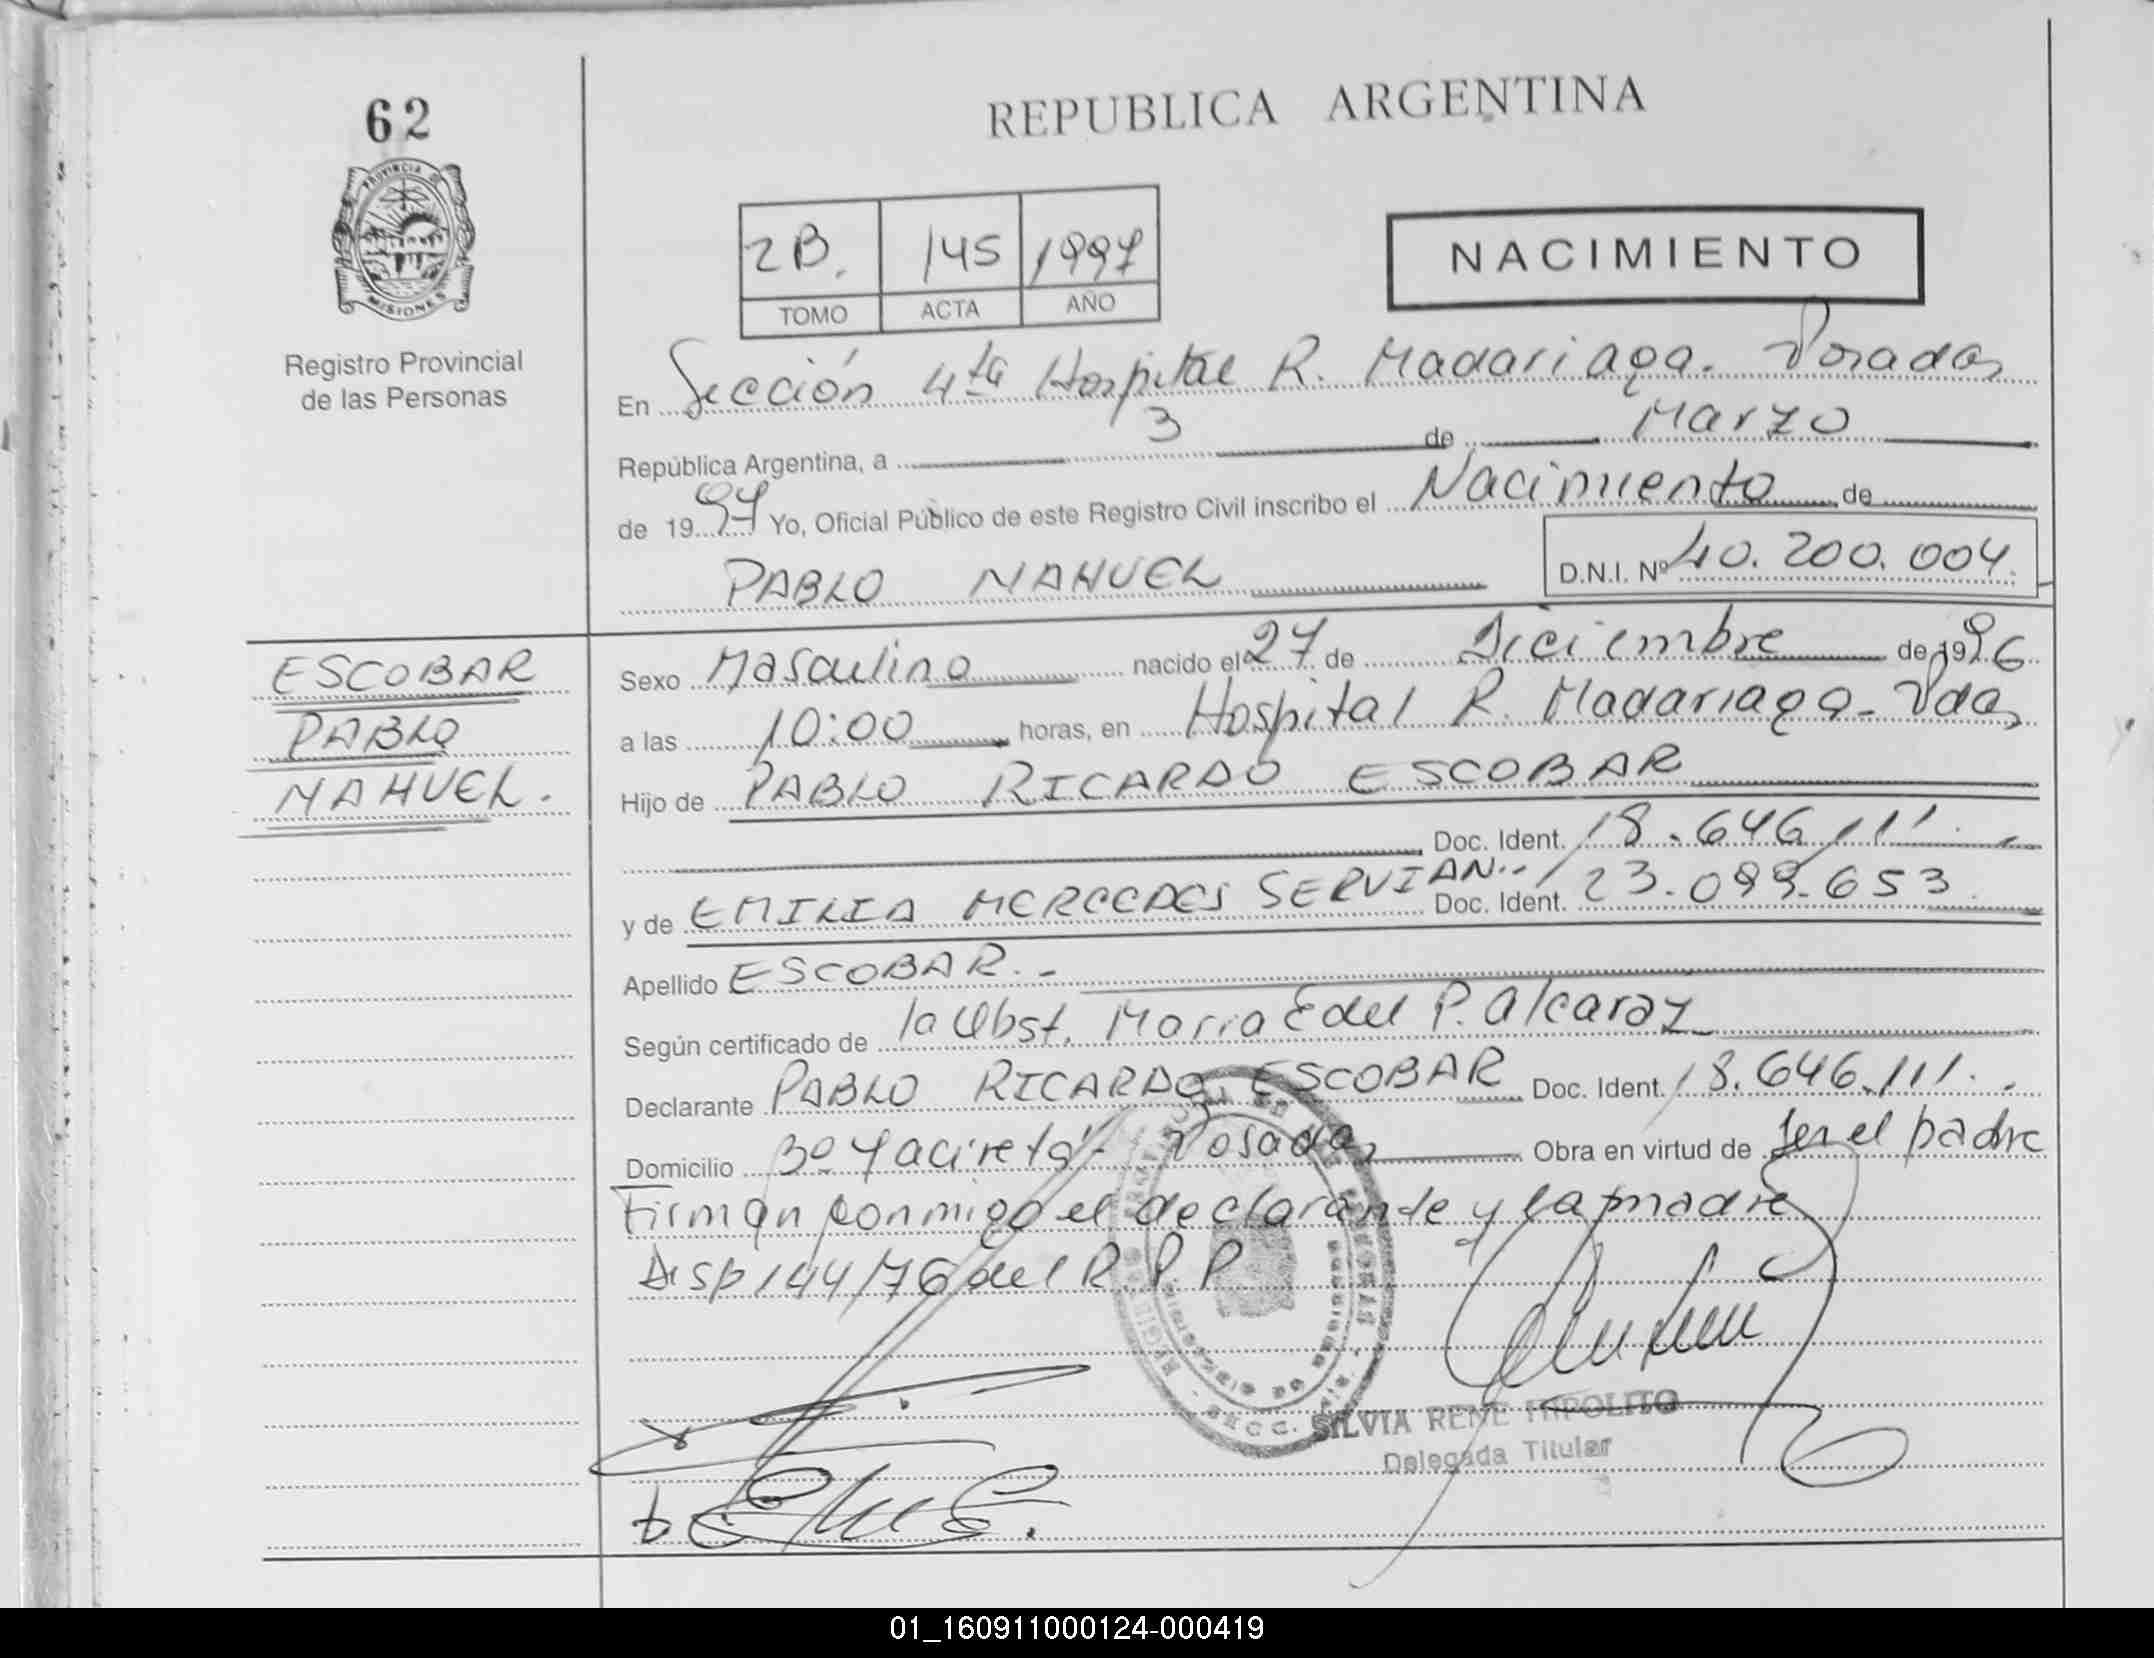 62
REPUBLICA ARGENTINA
PROVINCIA DE
MISIONES
Registro Provincial
de las Personas
2B. 145 1997
TOMO ACTA AÑO
NACIMIENTO
En Sección 4ta Hospital R. Madariaga. Posadas
República Argentina, a 3 de Marzo
de 1997 Yo, Oficial Público de este Registro Civil inscribo el Nacimiento de
PABLO NAHUEL D.N.I. Nº 40.200.004.
ESCOBAR
PABLO
NAHUEL.
Sexo Masculino nacido el 27 de Diciembre de 1996
a las 10:00 horas, en Hospital R. Madariaga - Pdas
Hijo de PABLO RICARDO ESCOBAR
Doc. Ident. 18.646.111.
y de EMILIA MERCEDES SERVIAN.. Doc. Ident. 23.099.653.
Apellido ESCOBAR. -
Según certificado de la Obst. Maria Edel P. Alcaraz
Declarante PABLO RICARDO ESCOBAR Doc. Ident. 18.646.111.
Domicilio Bº Yacireta - Posadas Obra en virtud de ser el padre
Firman conmigo el declarante y la madre
Disp 144/76 del R.P.P
SILVIA RENE HIPOLITO
Delegada Titular
01_160911000124-000419